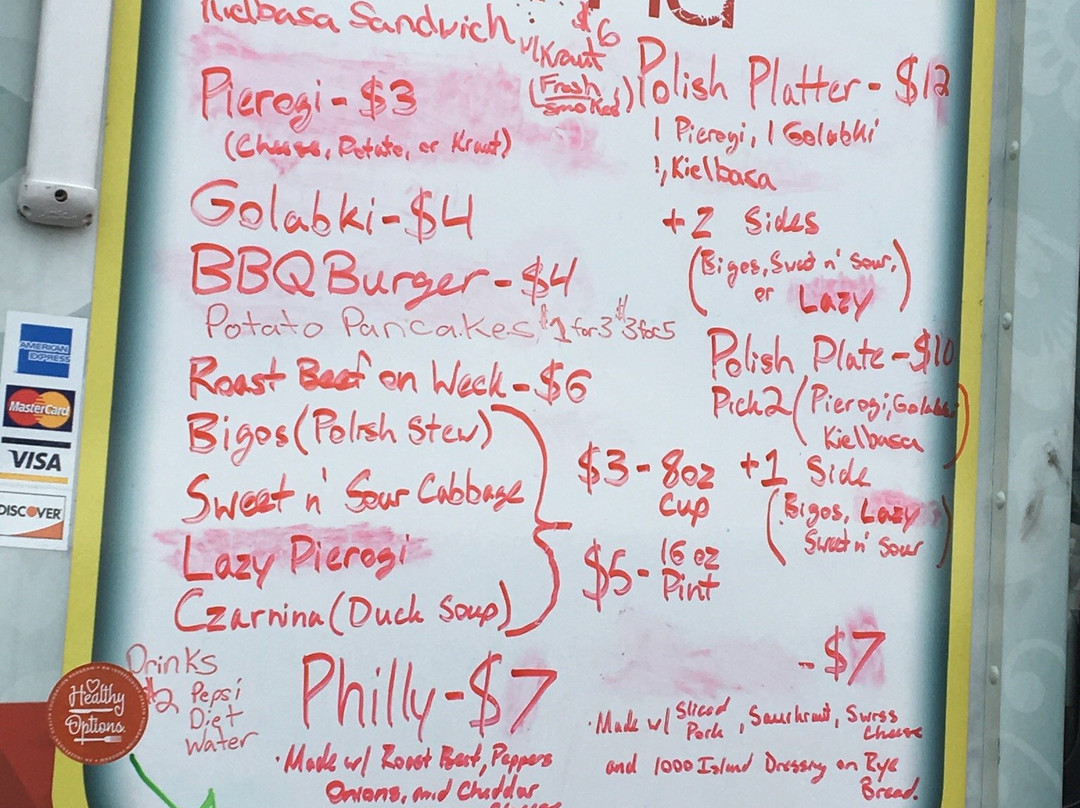 Kielbasa Sandwich $6
w/Kraut
(Fresh
smoked)
Pierogi - $3
(Cheese, Potato, or Kraut)
Golabki - $4
BBQ Burger - $4
Potato Pancakes $1 for 3 $3 for 5
Roast Beef on Weck - $6
Bigos (Polish Stew)
Sweet n' Sour Cabbage
Lazy Pierogi
Czarnina (Duck Soup)
$3 - 8oz
Cup
$5 - 16 oz
Pint
Polish Platter - $12
1 Pierogi, 1 Golabki
1, Kielbasa
+2 Sides
(Bigos, Sweet n' Sour,
or Lazy)
Polish Plate - $10
Pick 2 (Pierogi, Golabki
Kielbasa)
+1 Side
(Bigos, Lazy
Sweet n' Sour)
Drinks
$2 Pepsi
Diet
Water
Philly - $7
·Made w/ Roast Beef, Peppers
Onions, and Cheddar
- $7
·Made w/ Sliced Pork, Sauerkraut, Swiss Cheese
and 1000 Island Dressing on Rye
Bread.
AMERICAN
EXPRESS
MasterCard
VISA
DISCOVER
Healthy
Options